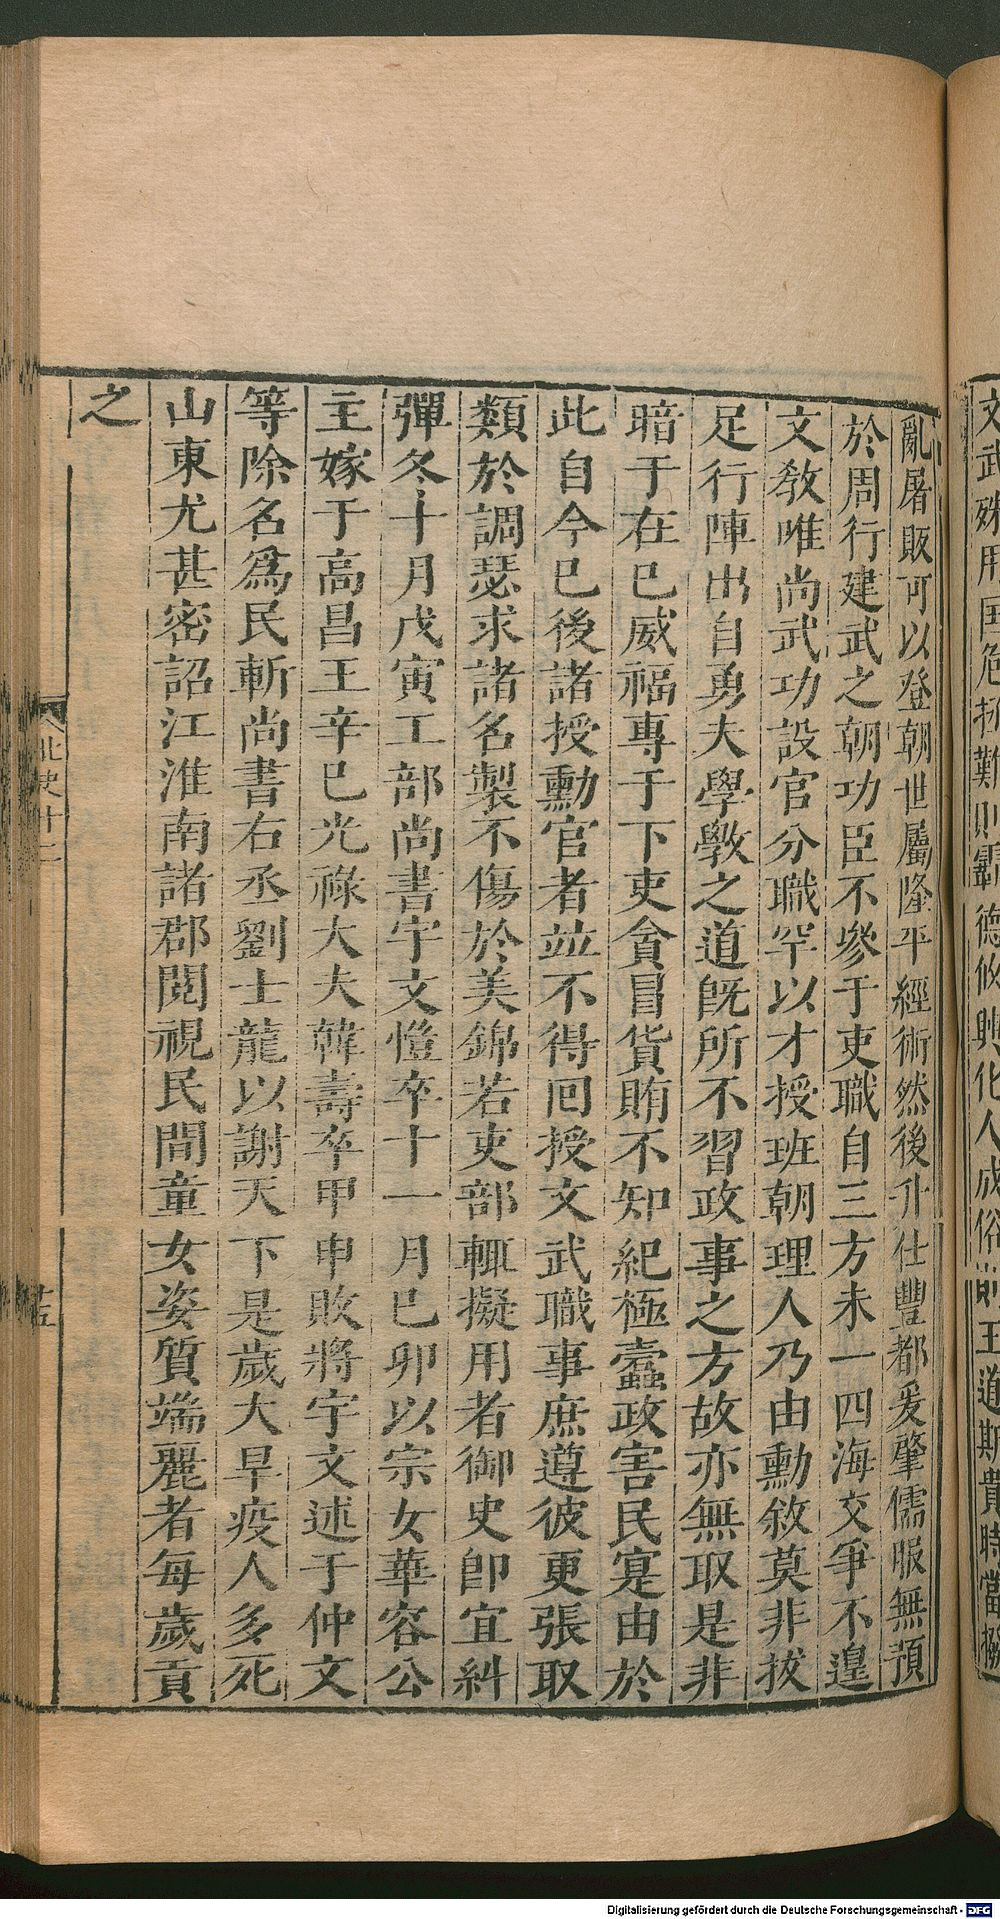 文武殊用匡危拯難則霸德攸興化人成俗則王道斯貴時當撥
亂屠販可以登朝世屬隆平經術然後升仕豐都爰肇儒服無預
於周行建武之朝功臣不參于吏職自三方未一四海交爭不遑
文敎唯尚武功設官分職罕以才授班朝理人乃由勳敘莫非拔
足行陣出自勇夫學斆之道旣所不習政事之方故亦無取是非
暗于在巳威福專于下吏貪冒貨賄不知紀極蠹政害民寔由於
此自今巳後諸授勳官者竝不得回授文武職事庶遵彼更張取
類於調瑟求諸名製不傷於美錦若吏部輒擬用者御史卽宜糾
彈冬十月戊寅工部尚書宇文愷卒十一月巳卯以宗女華容公
主嫁于高昌王辛巳光祿大夫韓壽卒甲申敗將宇文述于仲文
等除名爲民斬尚書右丞劉士龍以謝天下是歲大旱疫人多死
山東尤甚密詔江淮南諸郡閱視民間童女姿質端麗者每歲貢
之
北史十二
十五
Digitalisierung gefördert durch die Deutsche Forschungsgemeinschaft - DFG